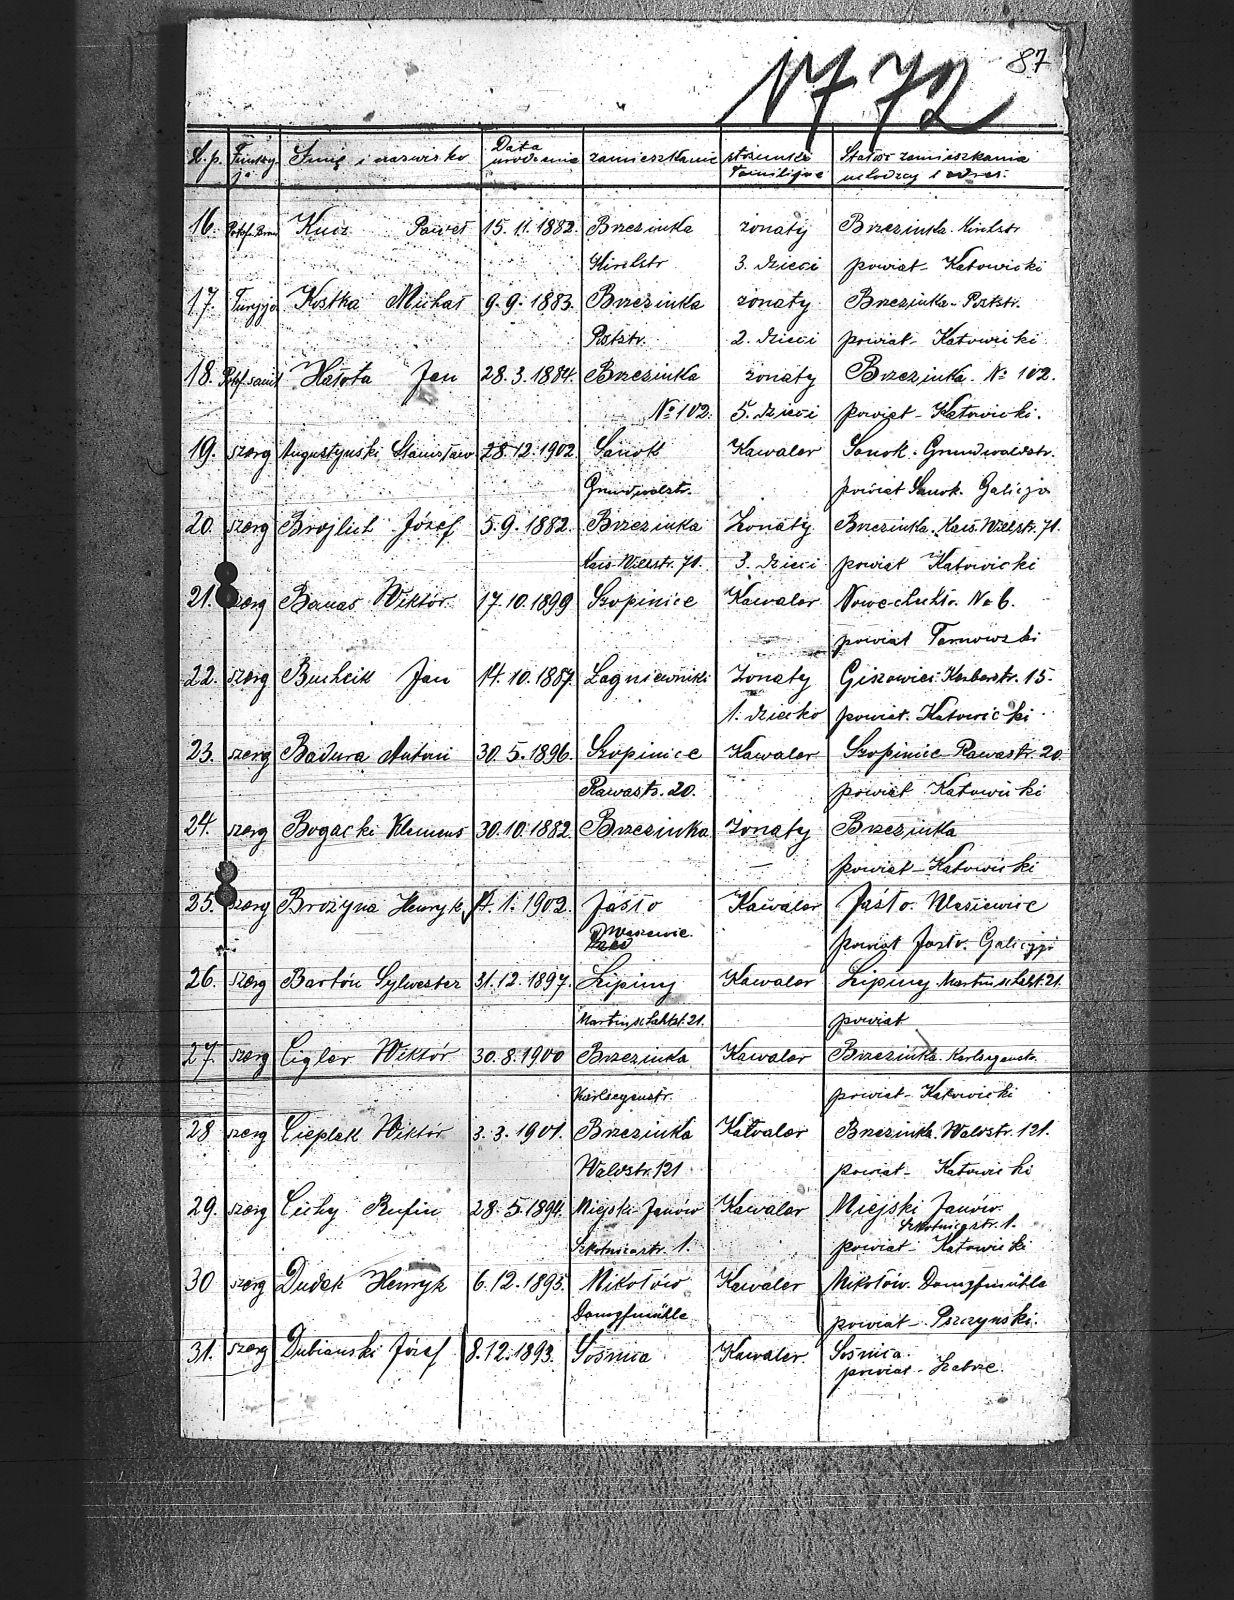 87
1772
L.p. Funkcyja Imię i nazwisko Data urodzenia zamieszkanie stosunki familijne zamieszkania i adres.
16. Kucz Paweł 15.11.1882. Brzezinka żonaty Brzezinka Kirchstr
Kirchstr 3. dzieci powiat - Katowicki
17. Kostka Michał 9.9.1883. Brzezinka żonaty Brzezinka - Poststr.
Poststr. 2. dzieci powiat - Katowicki
18. Hałota Jan 28.3.1884. Brzezinka żonaty Brzezinka. No 102.
No 102. 5. dzieci powiat - Katowicki.
19. szereg Augustynski Stanisław 28.12.1902. Sanok Kawaler Sanok. Grundwaldstr.
Grundwalstr. powiat Sanok. Galicja
20. szereg Brojlich Józef 5.9.1882. Brzezinka Żonaty Brzezinka. Kais. Willstr. 71.
Kais Willstr. 71. 3. dzieci powiat Katowicki
21. szerg Banaś Wiktór. 17.10.1899 Szopinice Kawaler No 6.
powiat Tarnowski
22. szerg Buchcik Jan 14.10.1887. Lagniewniki Żonaty Giszowiec 15.
1. dziecko powiat. Katowicki
23. szerg Badura Antoni 30.5.1896. Szopinice Kawaler Szopinice Rawastr. 20.
Rawastr. 20. powiat Katowicki
24. szerg Bogacki Klemens 30.10.1882. Brzezinka żonaty Brzezinka
— powiat - Katowicki
25. szerg Brożyna Henryk 14.1.1902. Jasło Kawaler Jasło.
powiat Jasło. Galicyji
26. szerg Bartón Sylwester 31.12.1897. Lipiny Kawaler Lipiny 21.
21. powiat
27. szerg Cigler Wiktór 30.8.1900 Brzezinka Kawaler Brzezinka. Karlsegenstr.
Karlsegenstr. powiat - Katowicki
28 szerg Cieplak Wiktór 3.3.1901. Brzezinka Kawaler Brzezinka. Waldstr. 121.
Waldstr. 121 powiat - Katowicki
29. szerg Cichy Rufin 28.5.1894. Miejski Janów Kawaler Miejski Janów.
Szkolnicastr. 1.
Szkolnicastr. 1. powiat - Katowicki
30 szerg Dudek Henryk 6.12.1895. Mikołów Kawaler Mikołów. Dampfmühle
Dampfmühle powiat - Pszczynski.
31. szerg Dubianski Józef 8.12.1893. Sośnica Kawaler. Sośnica.
powiat - Zabrze.